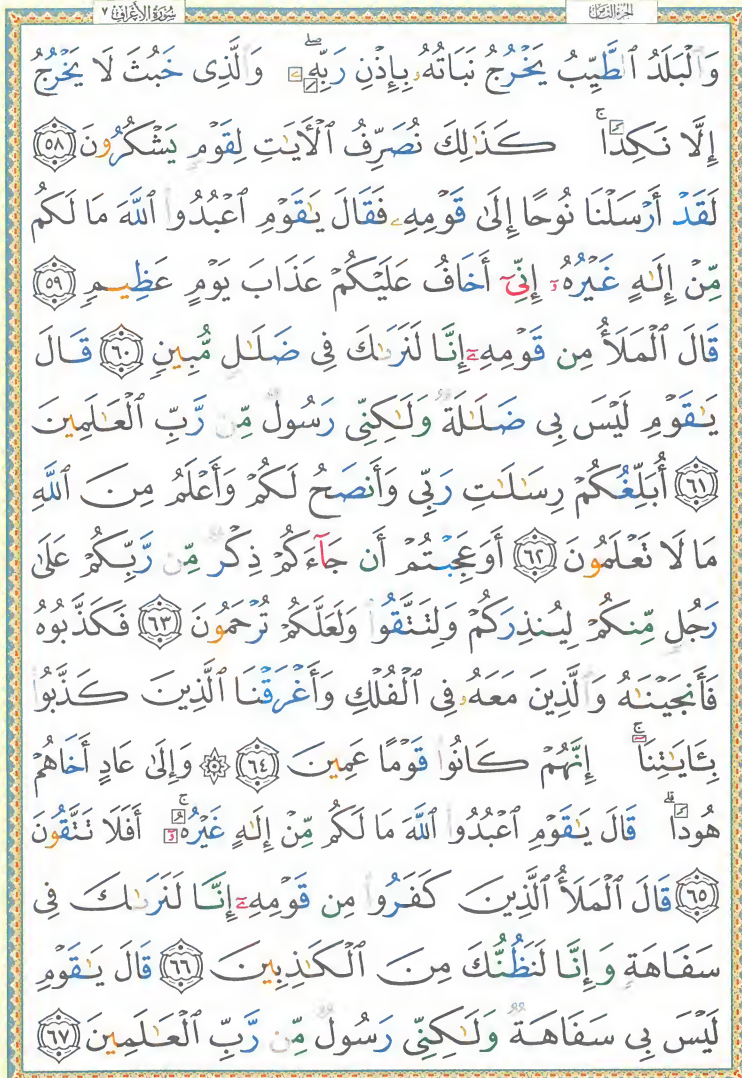 سُورَةُ الْأَعْرَافِ ٧
الجزء الثامن
وَٱلْبَلَدُ ٱلطَّيِّبُ يَخْرُجُ نَبَاتُهُۥ بِإِذْنِ رَبِّهِۦۖ وَٱلَّذِى خَبُثَ لَا يَخْرُجُ
إِلَّا نَكِدًاۚ كَذَٰلِكَ نُصَرِّفُ ٱلْأَيَٰتِ لِقَوْمٍ يَشْكُرُونَ ٥٨
لَقَدْ أَرْسَلْنَا نُوحًا إِلَىٰ قَوْمِهِۦ فَقَالَ يَٰقَوْمِ ٱعْبُدُوا۟ ٱللَّهَ مَا لَكُم
مِّنْ إِلَٰهٍ غَيْرُهُۥٓ إِنِّىٓ أَخَافُ عَلَيْكُمْ عَذَابَ يَوْمٍ عَظِيمٍ ٥٩
قَالَ ٱلْمَلَأُ مِن قَوْمِهِۦٓ إِنَّا لَنَرَىٰكَ فِى ضَلَٰلٍ مُّبِينٍ ٦٠ قَالَ
يَٰقَوْمِ لَيْسَ بِى ضَلَٰلَةٌ وَلَٰكِنِّى رَسُولٌ مِّن رَّبِّ ٱلْعَٰلَمِينَ
٦١ أُبَلِّغُكُمْ رِسَٰلَٰتِ رَبِّى وَأَنصَحُ لَكُمْ وَأَعْلَمُ مِنَ ٱللَّهِ
مَا لَا تَعْلَمُونَ ٦٢ أَوَعَجِبْتُمْ أَن جَآءَكُمْ ذِكْرٌ مِّن رَّبِّكُمْ عَلَىٰ
رَجُلٍ مِّنكُمْ لِيُنذِرَكُمْ وَلِتَتَّقُوا۟ وَلَعَلَّكُمْ تُرْحَمُونَ ٦٣ فَكَذَّبُوهُ
فَأَنجَيْنَٰهُ وَٱلَّذِينَ مَعَهُۥ فِى ٱلْفُلْكِ وَأَغْرَقْنَا ٱلَّذِينَ كَذَّبُوا۟
بِـَٔايَٰتِنَآۚ إِنَّهُمْ كَانُوا۟ قَوْمًا عَمِينَ ٦٤ ۞ وَإِلَىٰ عَادٍ أَخَاهُمْ
هُودًاۗ قَالَ يَٰقَوْمِ ٱعْبُدُوا۟ ٱللَّهَ مَا لَكُم مِّنْ إِلَٰهٍ غَيْرُهُۥٓۚ أَفَلَا تَتَّقُونَ
٦٥ قَالَ ٱلْمَلَأُ ٱلَّذِينَ كَفَرُوا۟ مِن قَوْمِهِۦٓ إِنَّا لَنَرَىٰكَ فِى
سَفَاهَةٍ وَإِنَّا لَنَظُنُّكَ مِنَ ٱلْكَٰذِبِينَ ٦٦ قَالَ يَٰقَوْمِ
لَيْسَ بِى سَفَاهَةٌ وَلَٰكِنِّى رَسُولٌ مِّن رَّبِّ ٱلْعَٰلَمِينَ ٦٧